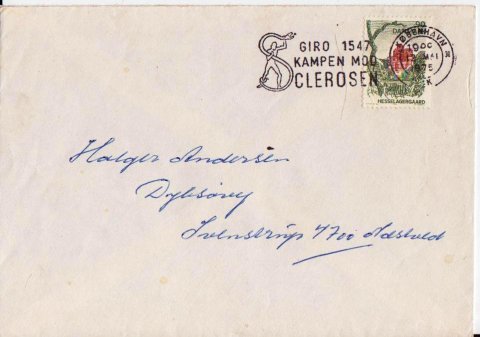 GIRO 1547
KAMPEN MOD
SCLEROSEN
KØBENHAVN
1975
K
90
HESSELAGERGAARD
Holger Andersen
Dybsøvej
Svenstrup 4700 Næstved